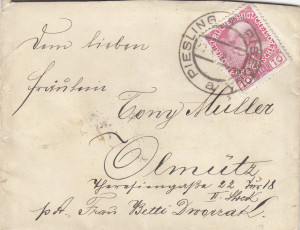 Dem lieben
Fräulein
Tony Müller
Olmütz
Theresiengasse 22 Thür 18
II. Stock
p. A. Frau Betti Dworzak
PIESLING
10 10